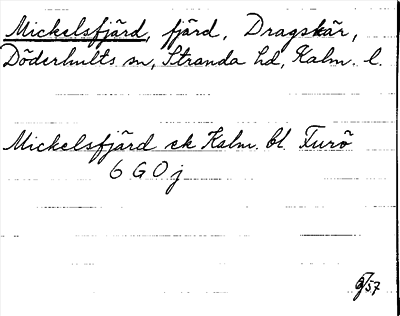 Mickelsfjärd, fjärd, Dragskär,
Döderhults sn, Stranda hd, Kalm. l.
Mickelsfjärd ek Kalm. bl. Furö
6 G 0 j
57